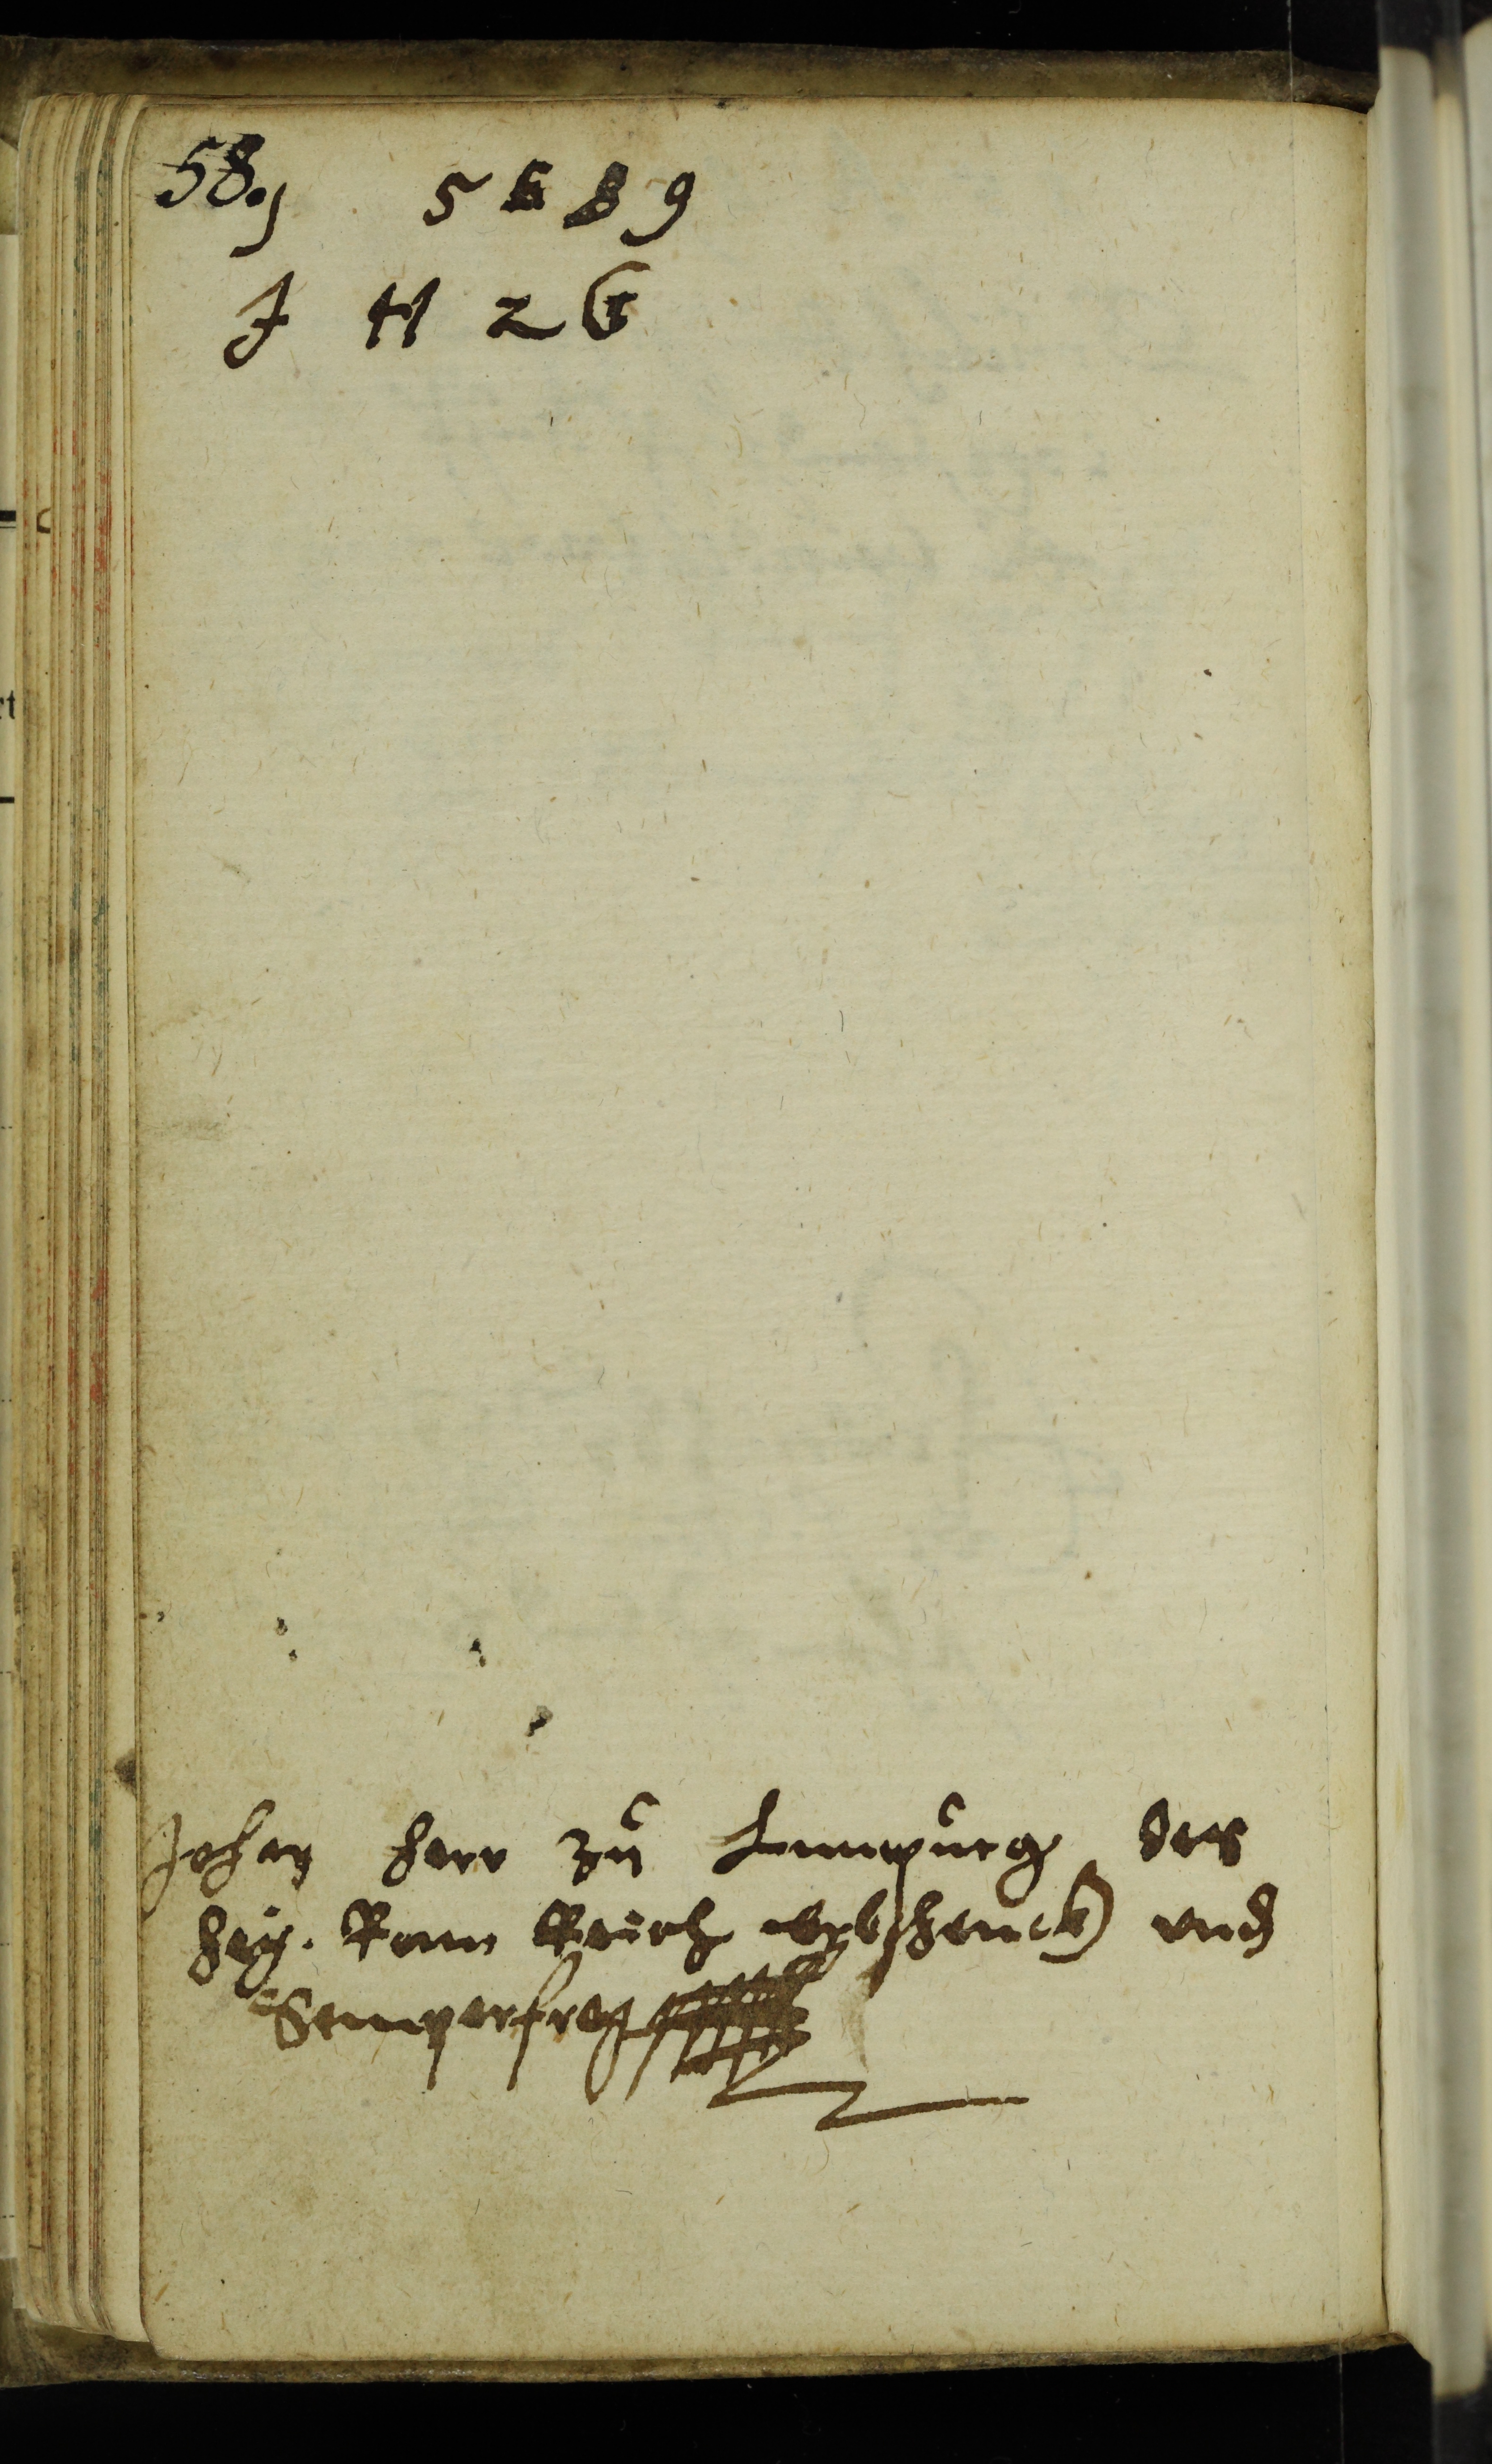 58.
5 8 9
J H Z G
Johan herr zu Limpurg des
hey. Rom Reich erbschenck und
Semperfrey